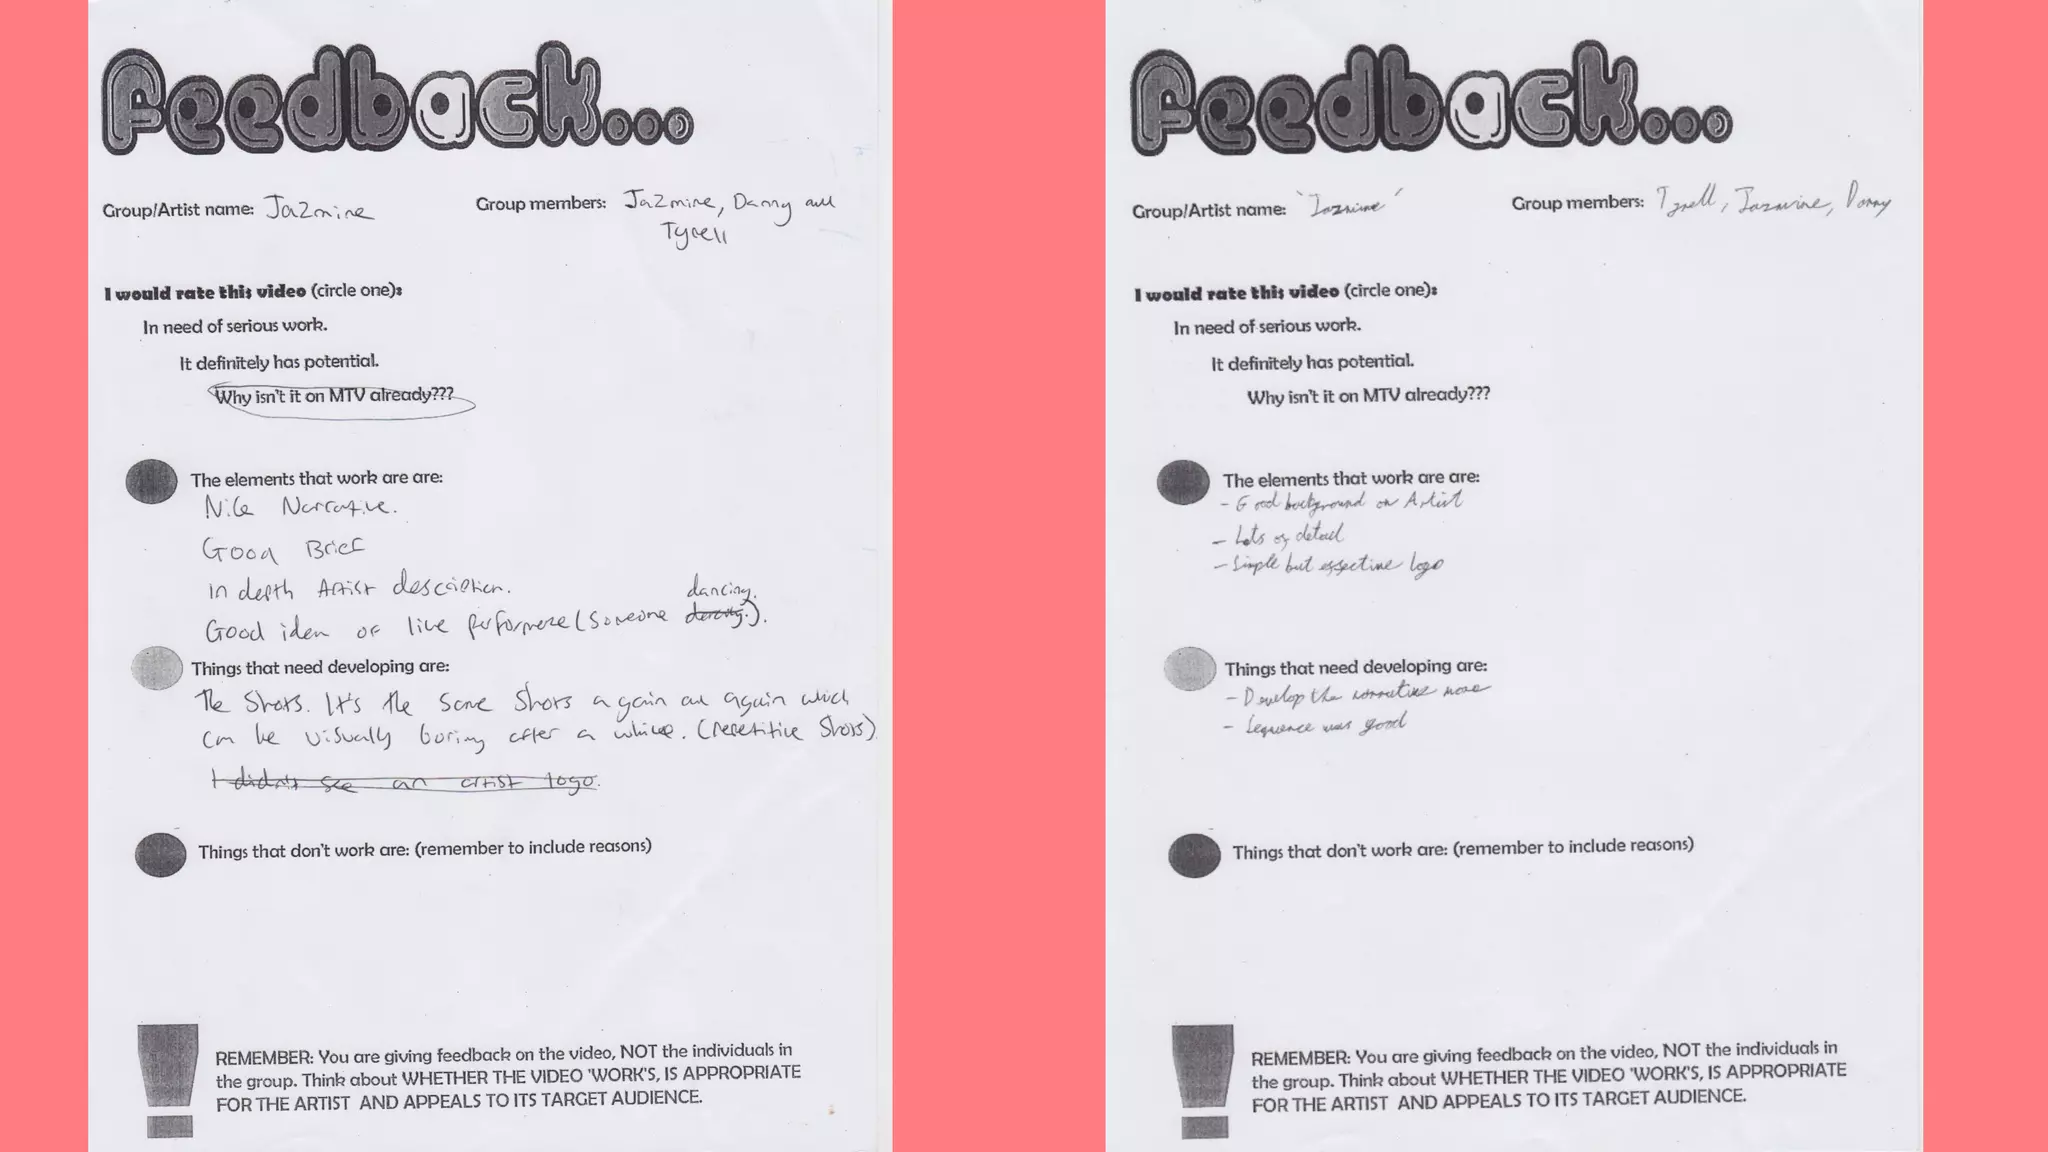 Feedback...
Group/Artist name: Jazmine
Group members: Jazmine, Danny and
Tyrell
I would rate this video (circle one):
In need of serious work.
It definitely has potential.
Why isn't it on MTV already???
The elements that work are are:
Nice Narrative.
Good Brief
In depth Artist description.
dancing.
Good idea of live performance (Someone dancing.).
Things that need developing are:
The Shots. It's the same shots again and again which
can be visually boring after a while. (repetitive Shots)
I didn't see an artist logo.
Things that don't work are: (remember to include reasons)
REMEMBER: You are giving feedback on the video, NOT the individuals in
the group. Think about WHETHER THE VIDEO 'WORK'S, IS APPROPRIATE
FOR THE ARTIST AND APPEALS TO ITS TARGET AUDIENCE.
Feedback...
Group/Artist name: 'Jazmine'
Group members: Tyrell, Jazmine, Danny
I would rate this video (circle one):
In need of serious work.
It definitely has potential.
Why isn't it on MTV already???
The elements that work are are:
- Good background on Artist
- Lots of detail
- Simple but effective logo
Things that need developing are:
- Develop the narrative more
- Sequence was good
Things that don't work are: (remember to include reasons)
REMEMBER: You are giving feedback on the video, NOT the individuals in
the group. Think about WHETHER THE VIDEO 'WORK'S, IS APPROPRIATE
FOR THE ARTIST AND APPEALS TO ITS TARGET AUDIENCE.